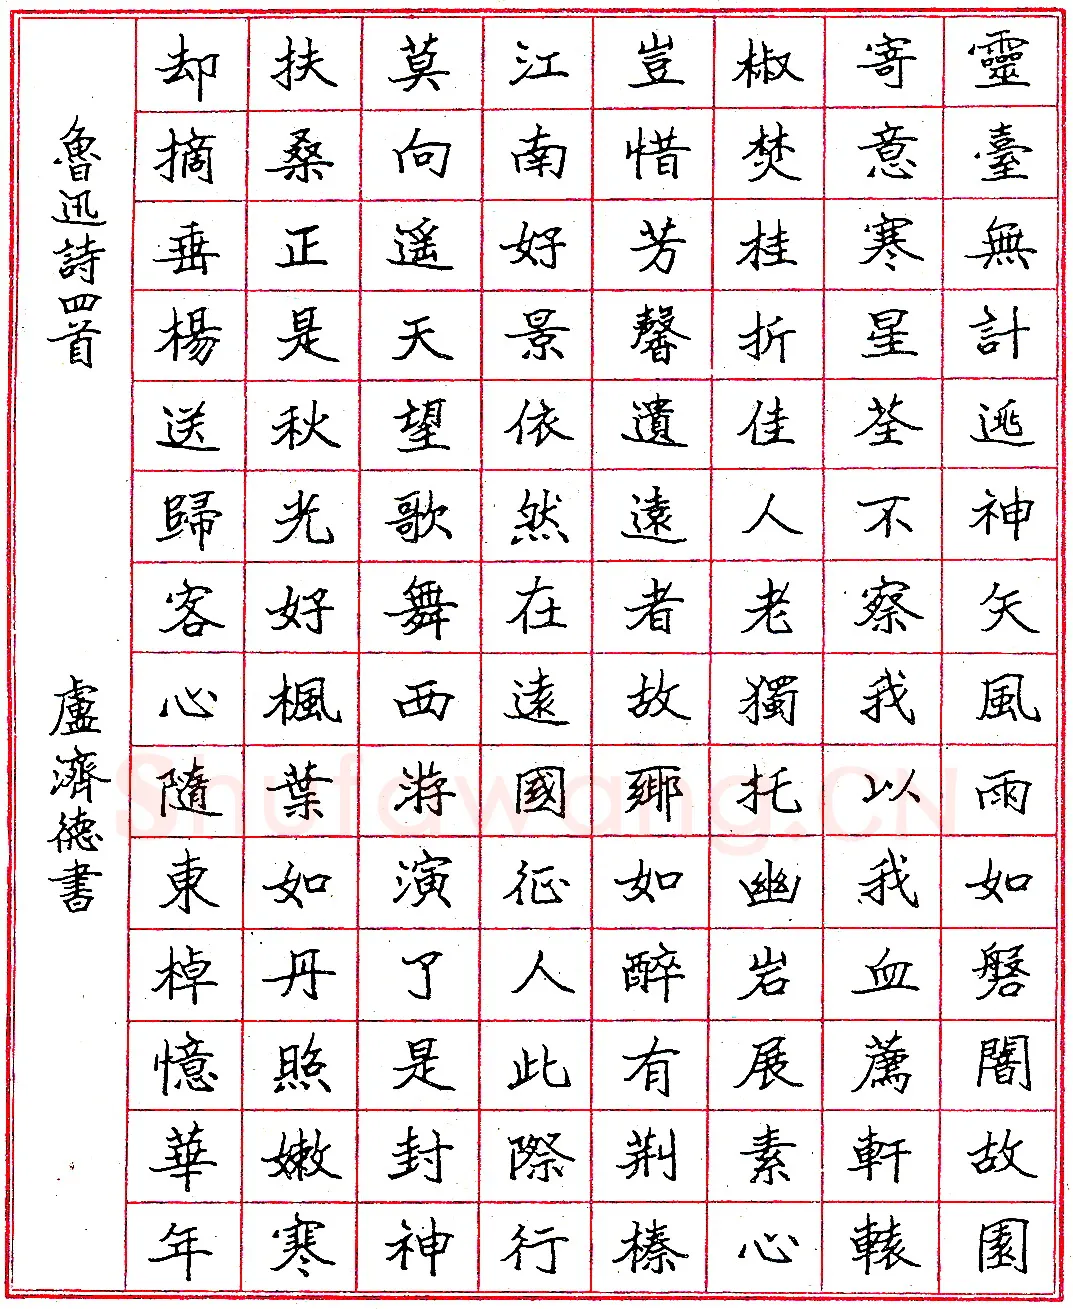 靈臺無計逃神矢風雨如磐闇故園
寄意寒星荃不察我以我血薦軒轅
椒焚桂折佳人老獨托幽岩展素心
豈惜芳馨遺遠者故鄉如醉有荆榛
江南好景依然在遠國征人此際行
莫向遥天望歌舞西游演了是封神
扶桑正是秋光好楓葉如丹照嫩寒
却摘垂楊送歸客心隨東棹憶華年
魯迅詩四首 盧濟德書
Shufawang.CN